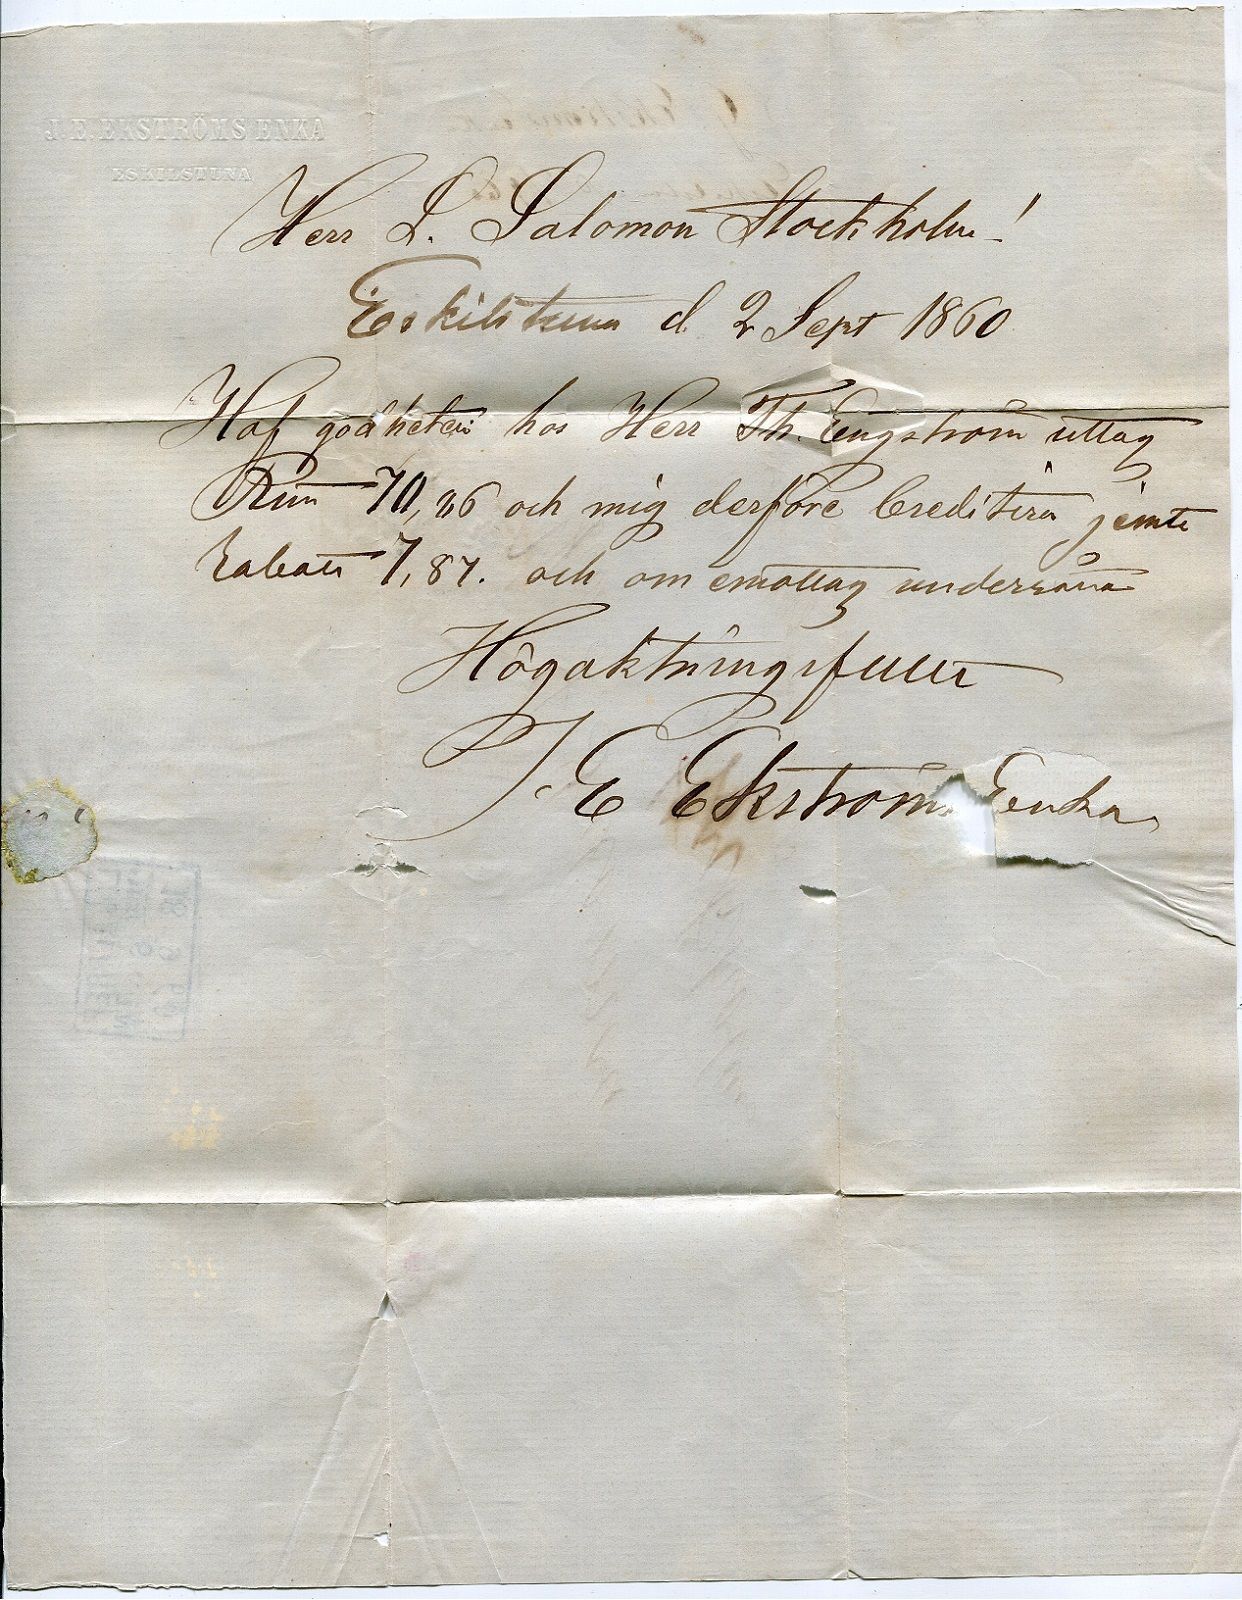 J. E. EKSTRÖMS ENKA
ESKILSTUNA
Herr L. Salomon Stockholm!
Eskilstuna d 2 Sept 1860
Haf godheten hos Herr Th. Engström uttag
70, och mig derföre Creditera jemte
Rabatt 7,87. och om emottag underrätta
Högaktningsfullt
J. E Ekström Enka